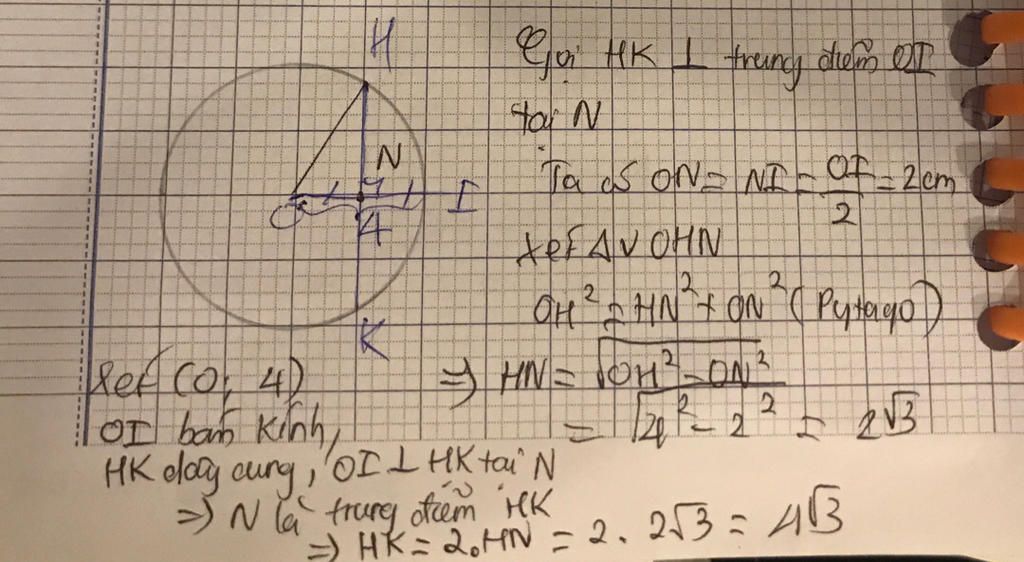 H
N
O
I
4
K
Gọi HK ⊥ trung điểm OI
tại N
Ta có ON = NI = OI/2 = 2cm
xét Δv OHN
OH² = HN² + ON² (Pytago)
⇒ HN = √OH² - ON²
= √4² - 2² = 2√3
Xét (O; 4)
OI bán kính,
HK dây cung, OI ⊥ HK tại N
⇒ N là trung điểm HK
⇒ HK = 2.HN = 2. 2√3 = 4√3